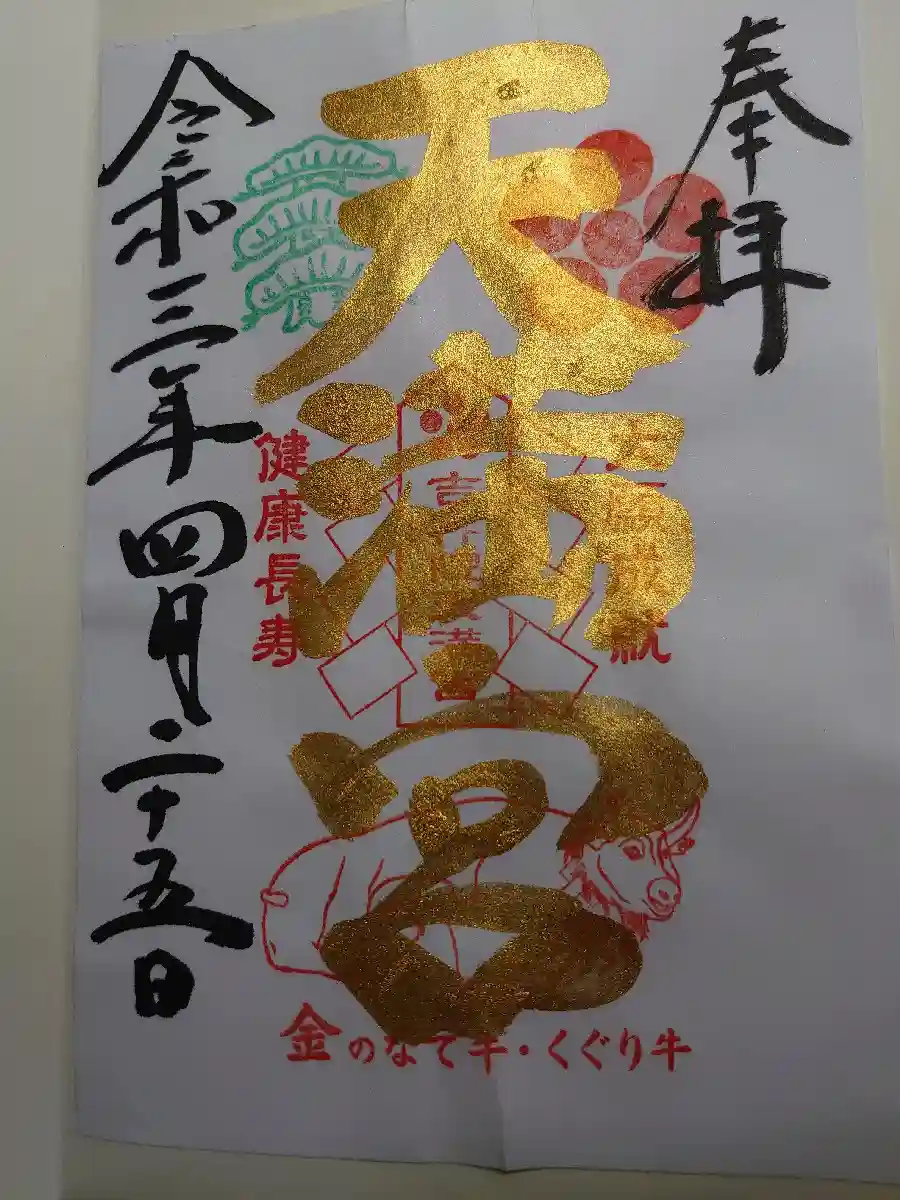 奉拝
天満宮
健康長寿
金のなで牛・くぐり牛
令和三年四月二十五日